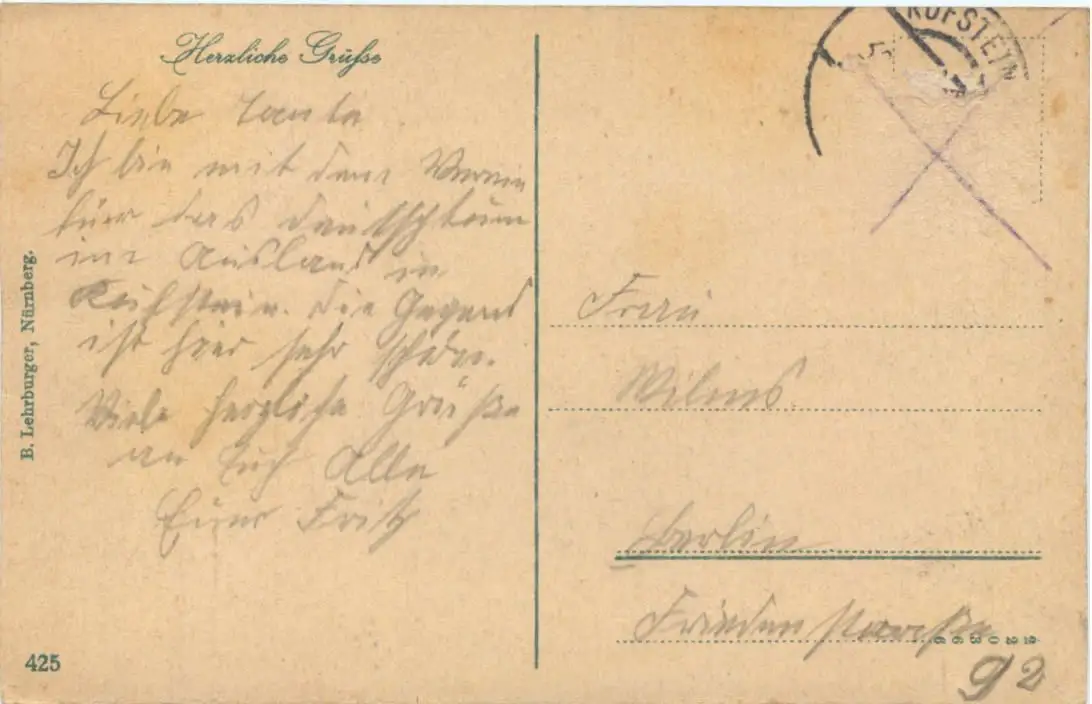 Herzliche Grüße
Liebe Tante
Ich bin mit dem Verein
für das Deutschtum
im Ausland in
Kufstein. Die Gegend
ist hier sehr schön.
Viele herzliche Grüße
an Euch Alle
Euer Fritz
B. Lehrburger, Nürnberg.
425
KUFSTEIN
Frau
Wilms
Berlin
Friedenstraße
22036
92